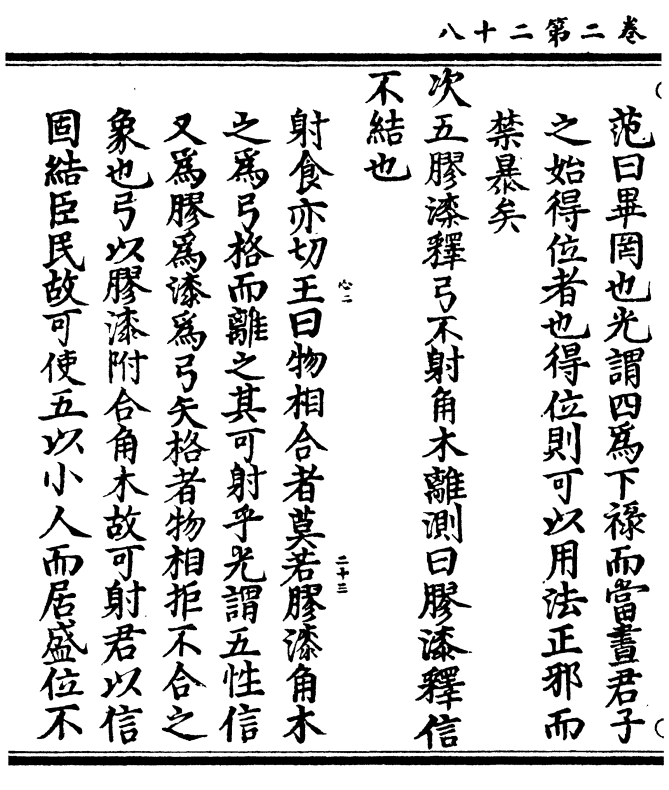 卷二第二十八
范曰畢罔也光謂四爲下祿而當晝君子
之始得位者也得位則可以用法正邪而
禁暴矣
次五膠漆釋弓不射角木離測曰膠漆釋信
不結也
射食亦切王曰物相合者莫若膠漆角木
心二
二十三
之爲弓格而離之其可射乎光謂五性信
又爲膠爲漆爲弓矢格者物相拒不合之
象也弓以膠漆附合角木故可射君以信
固結臣民故可使五以小人而居盛位不